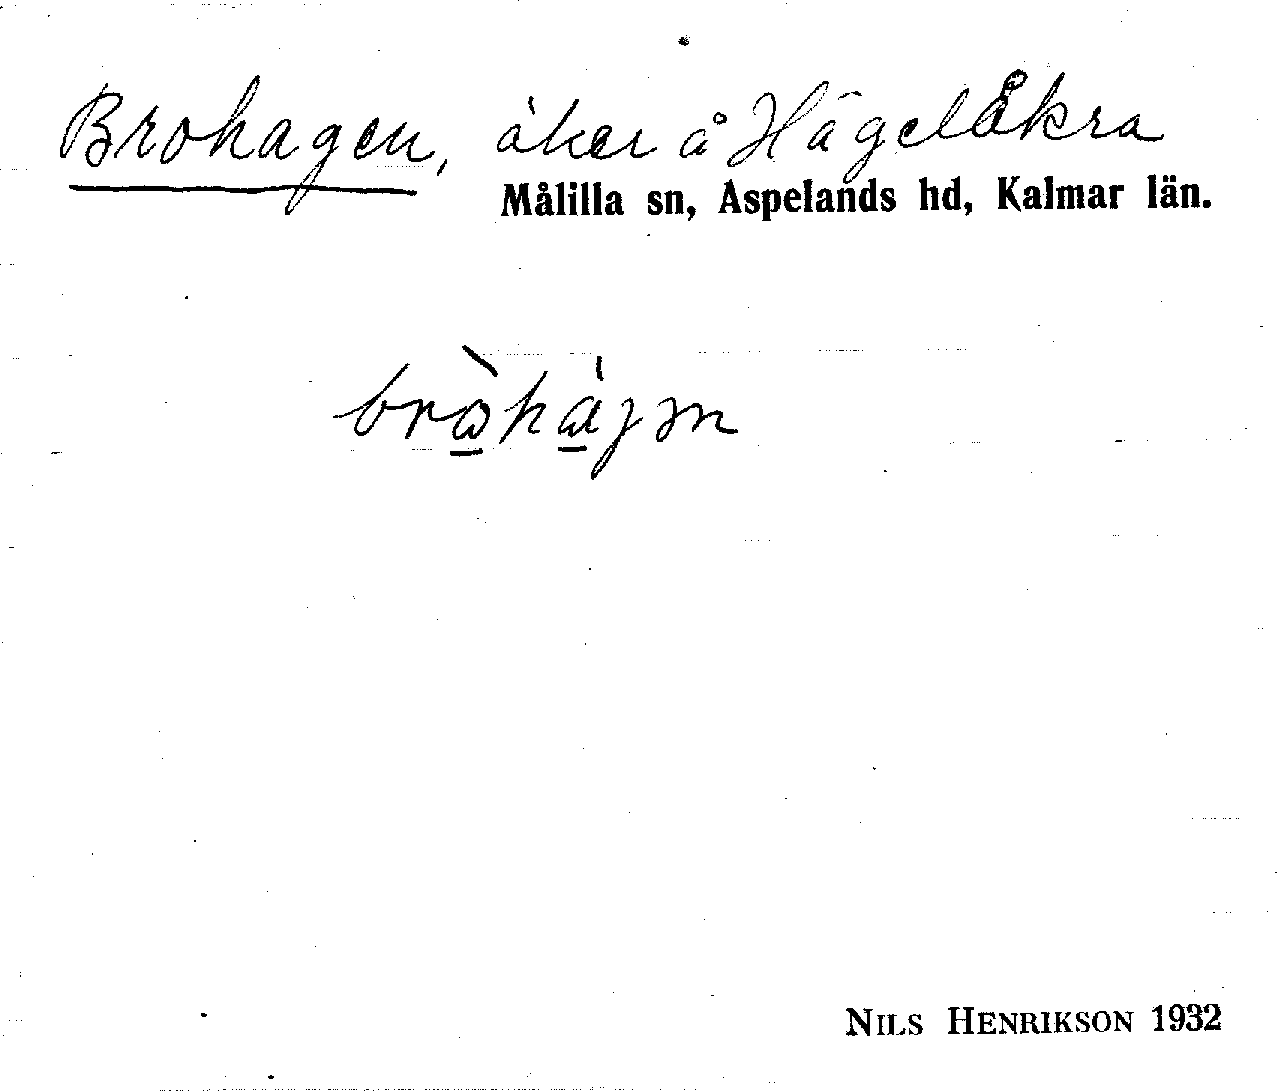 Brohagen, åker å HägelÅkra
Målilla sn, Aspelands hd, Kalmar län.
NILS HENRIKSON 1932